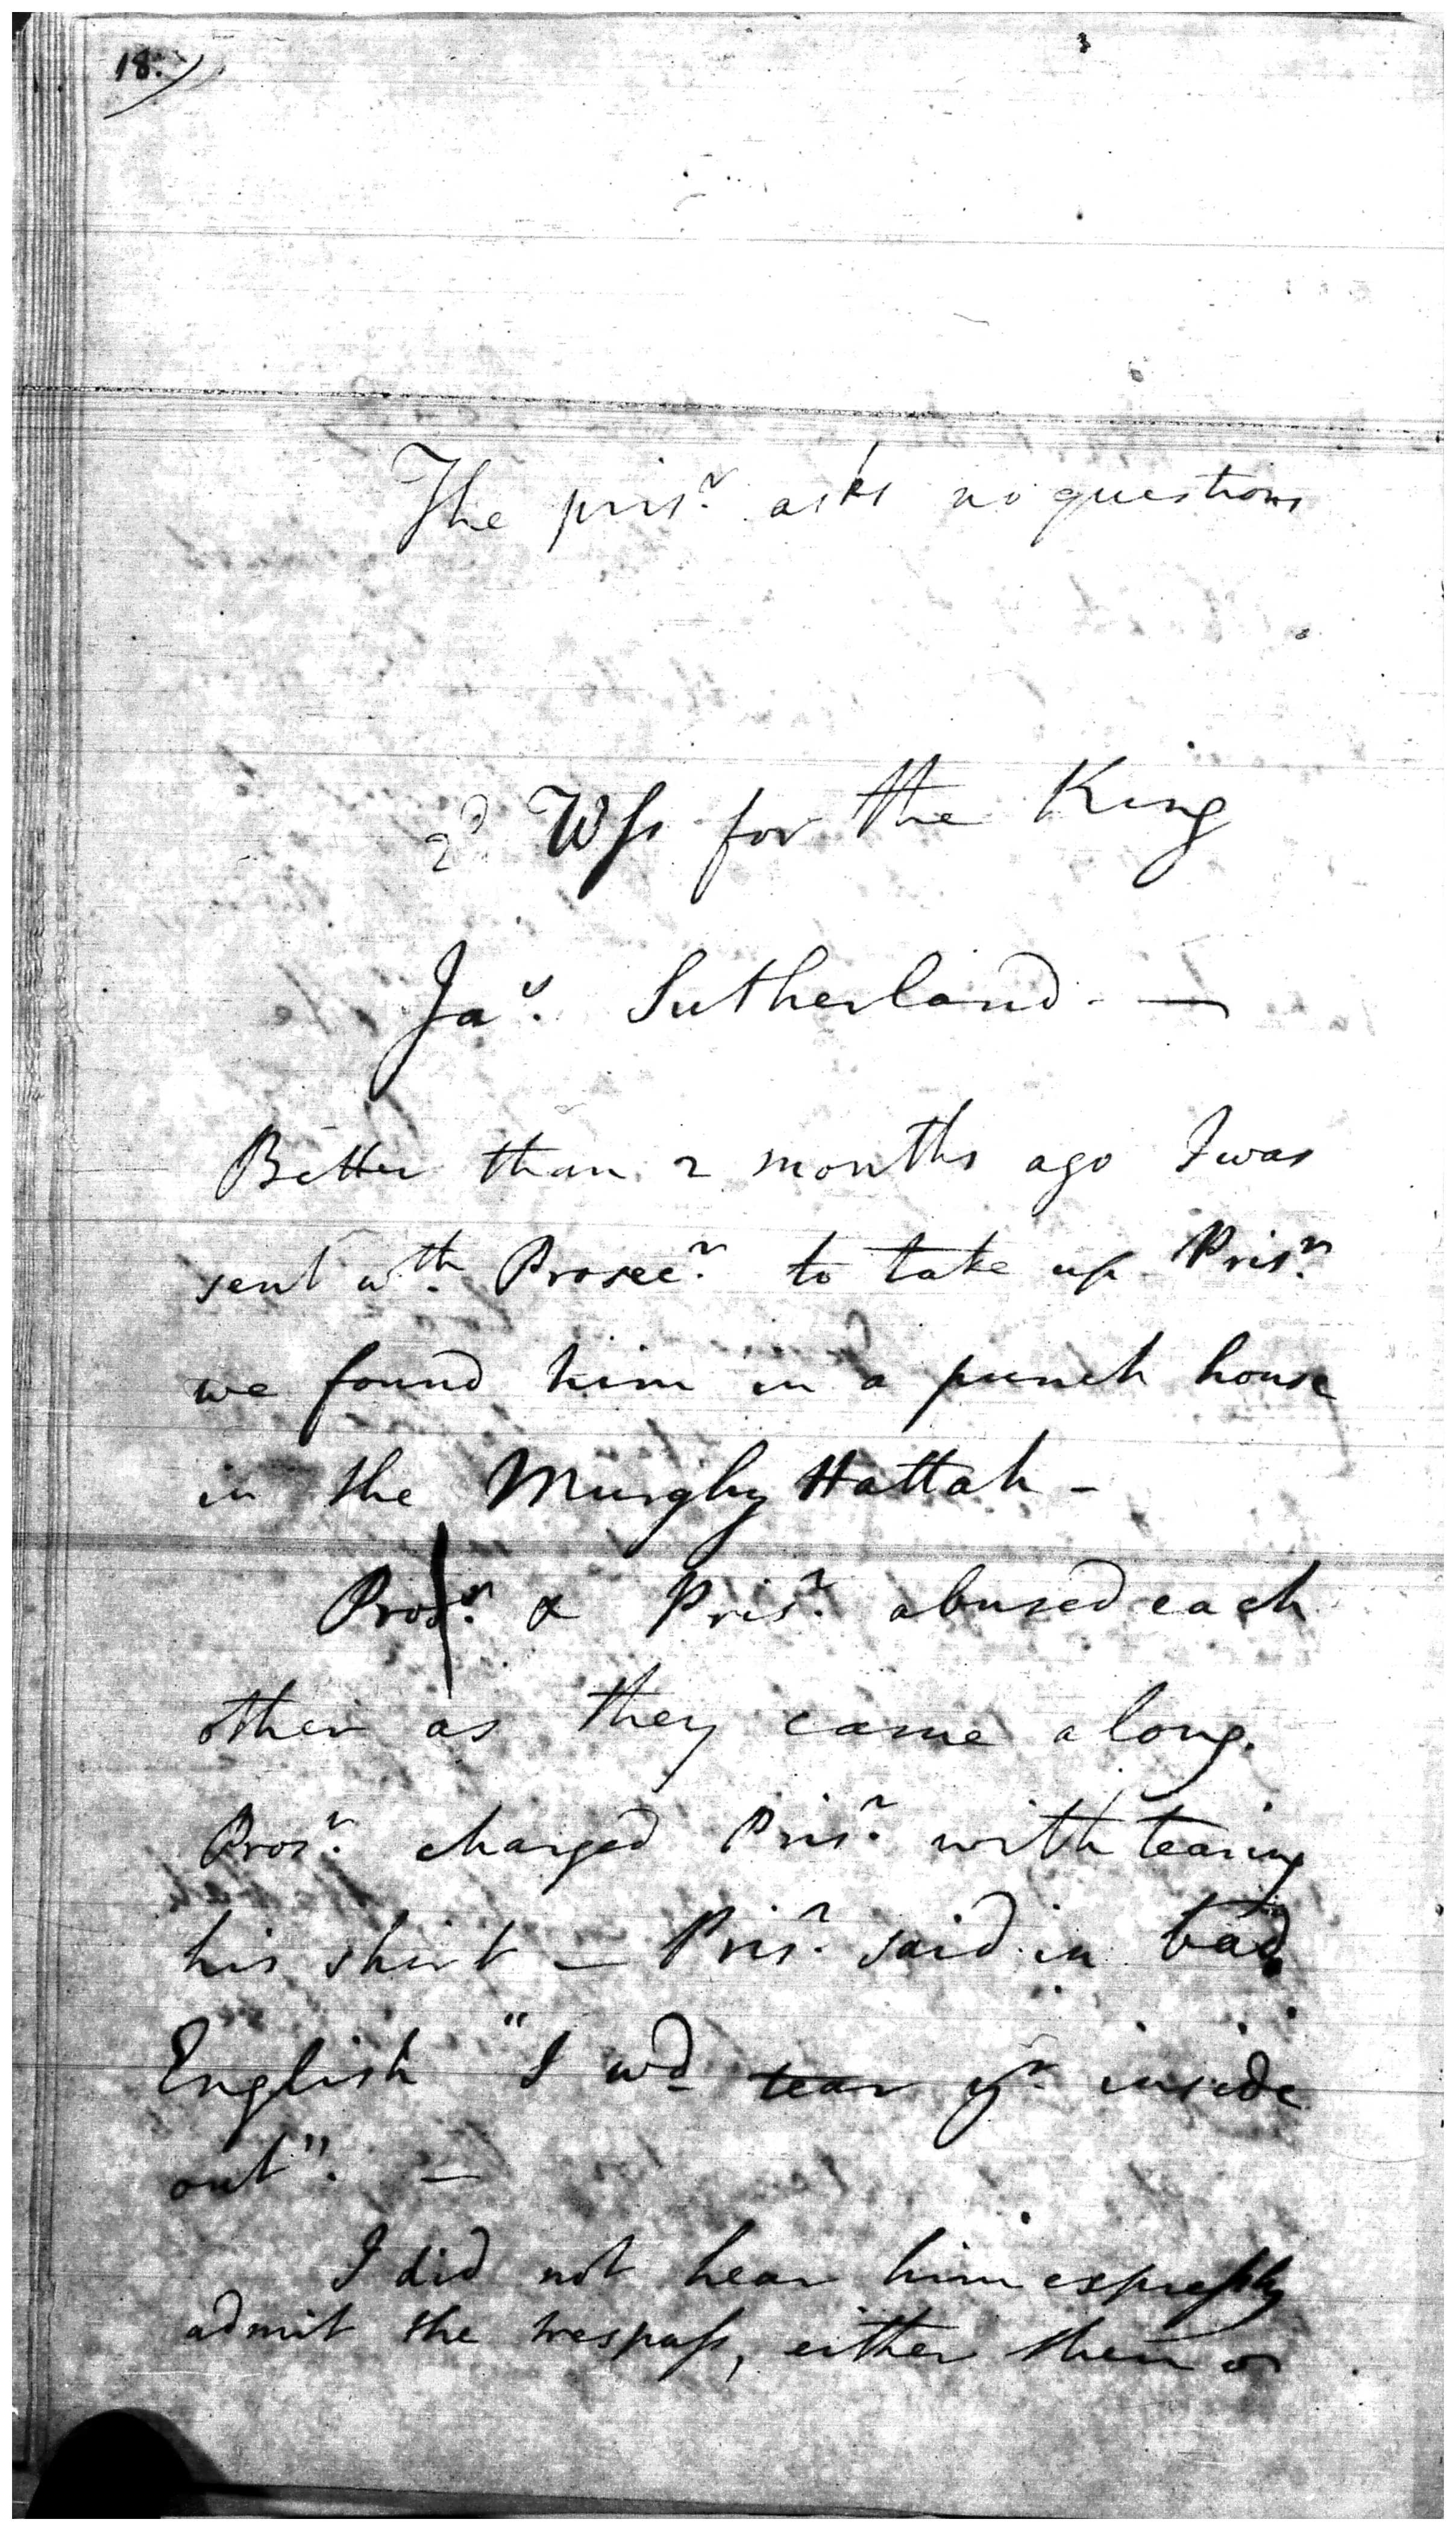 18.
The prisr. asks no questions
2d Wss for the King
Jas. Sutherland. —
Better than 2 months ago I was
sent wth. Prosecr. to take up Prisr.
we found him in a punch house
in the Murghy Hattah -
Prosr. & Prisr. abused each
other as they came along.
Prosr. charged Prisr. with tearing
his shirt — Prisr. said in bad
English "I wd tear yr. inside
out". —
I did not hear him expressly
admit the trespass, either then or